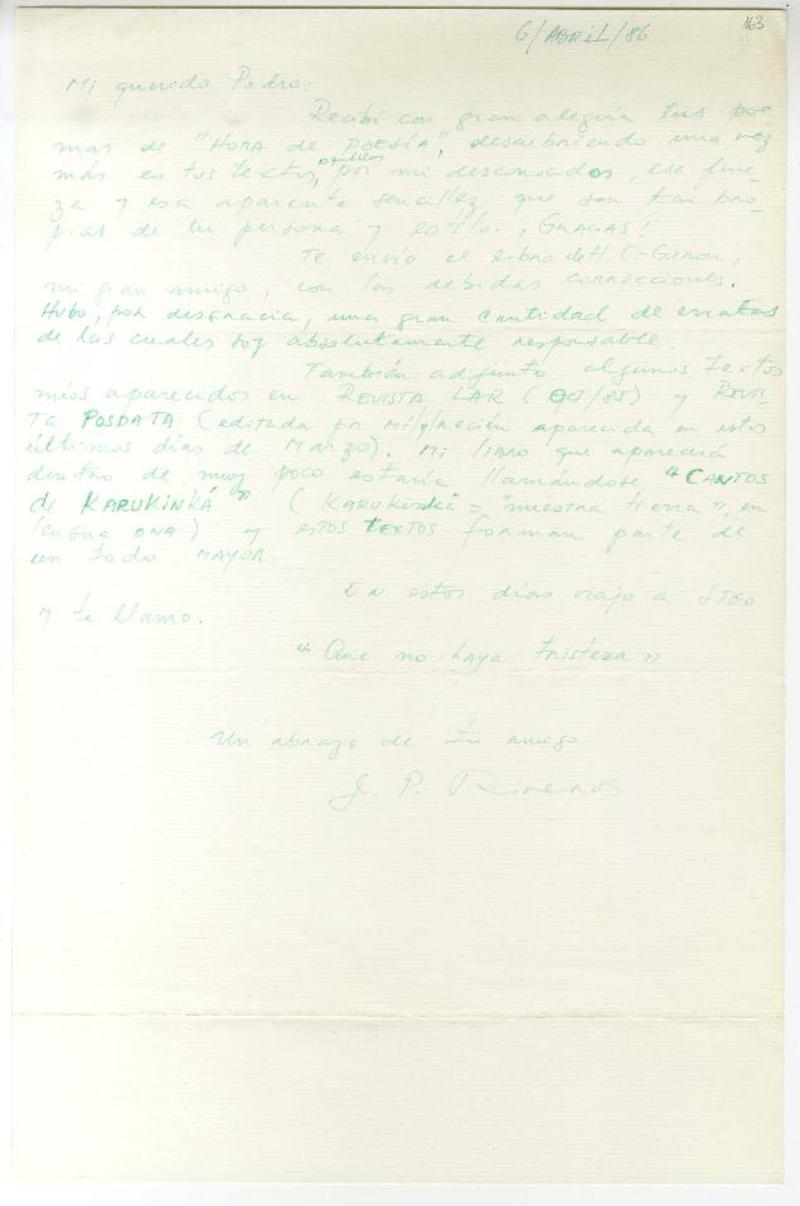 163
6/ABRIL/86
Mi querido Pedro:
Recibí con gran alegría tus poe-
mas de "HORA DE POESÍA", descubriendo una vez
más en tus textos, aquellos por mi desconocidos, esa fine-
za y esa aparente sencillez que son tan pro-
pias de tu persona y estilo. ¡GRACIAS!
Te envío el libro de H. C.-Giron,
mi gran amigo, con las debidas correcciones.
Hubo, por desgracia, una gran cantidad de erratas
de las cuales soy absolutamente responsable.
También adjunto algunos textos
míos aparecidos en REVISTA LAR (/85) y REVIS-
TA POSDATA (editada por mi y recién aparecida en estos
últimos días de Marzo). Mi libro que aparecerá
dentro de muy poco estaría llamándose "CANTOS
de KARUKINKÁ" (Karukinká = "nuestra tierra", en
lengua ONA) y estos TEXTOS forman parte de
un todo MAYOR.
En estos días viajo a STGO
y te llamo.
"Que no haya tristeza"
Un abrazo de tu amigo
J. P. Riveros